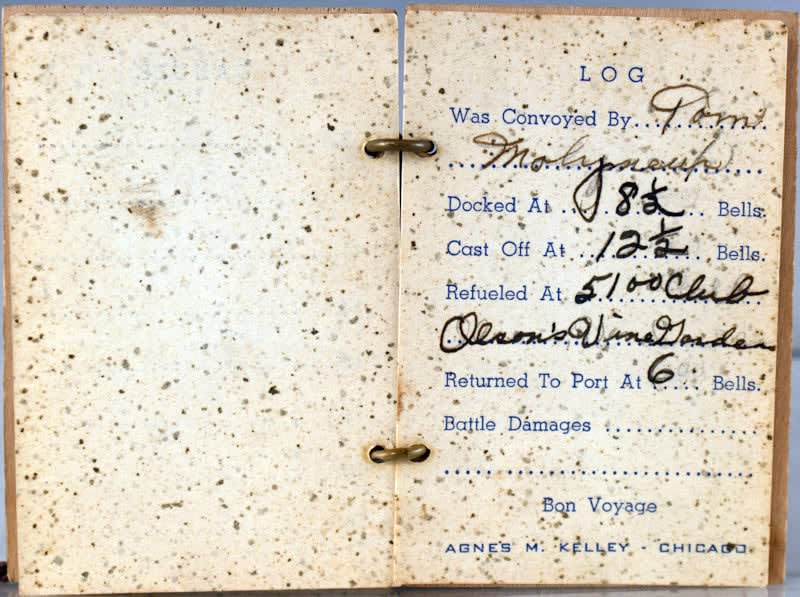 LOG
Was Convoyed By Tom
Molyneaux
Docked At 8½ Bells.
Cast Off At 12½ Bells.
Refueled At 5100 Club
Olson's Vine Garden
Returned To Port At 6 Bells.
Battle Damages
Bon Voyage
AGNES M. KELLEY - CHICAGO